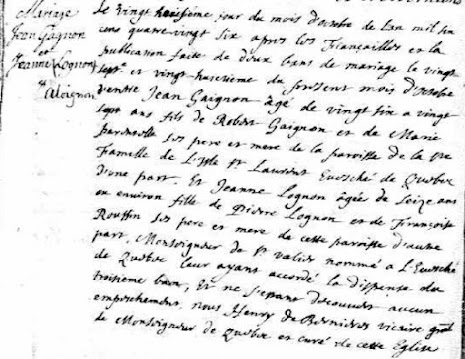 Mariage
Jean Gagnon
et
Jeanne Lognon
Le vingt huitiesme jour du mois d'octobre de l'an mil six
cens quatre vingt six apres les fiançailles et la
publication faite de deux bans de mariage le vingt
sept e et vingt huitiesme du present mois d'octobre
d'entre Jean Gaignon âgé de vingt six a vingt
sept ans fils de Robert Gaignon et de Marie
Parenteau ses pere et mere de la paroisse de la Ste
Famille de L'isle St Laurent Evesché de Quebec
d'une part, Et Jeanne Lognon âgée de seize ans
ou environ fille de Pierre Lognon et de Françoise
Roussin ses pere et mere de cette paroisse d'autre
part, Monseigneur de St valier nommé a L'Evesché
de Quebec leur ayant accordé la dispense du
troisieme ban, Et ne s'estant decouvert aucun
empeschement, nous Henry de Bernieres vicaire gnal
de Monseigneur de Quebec et curé de cette Eglise